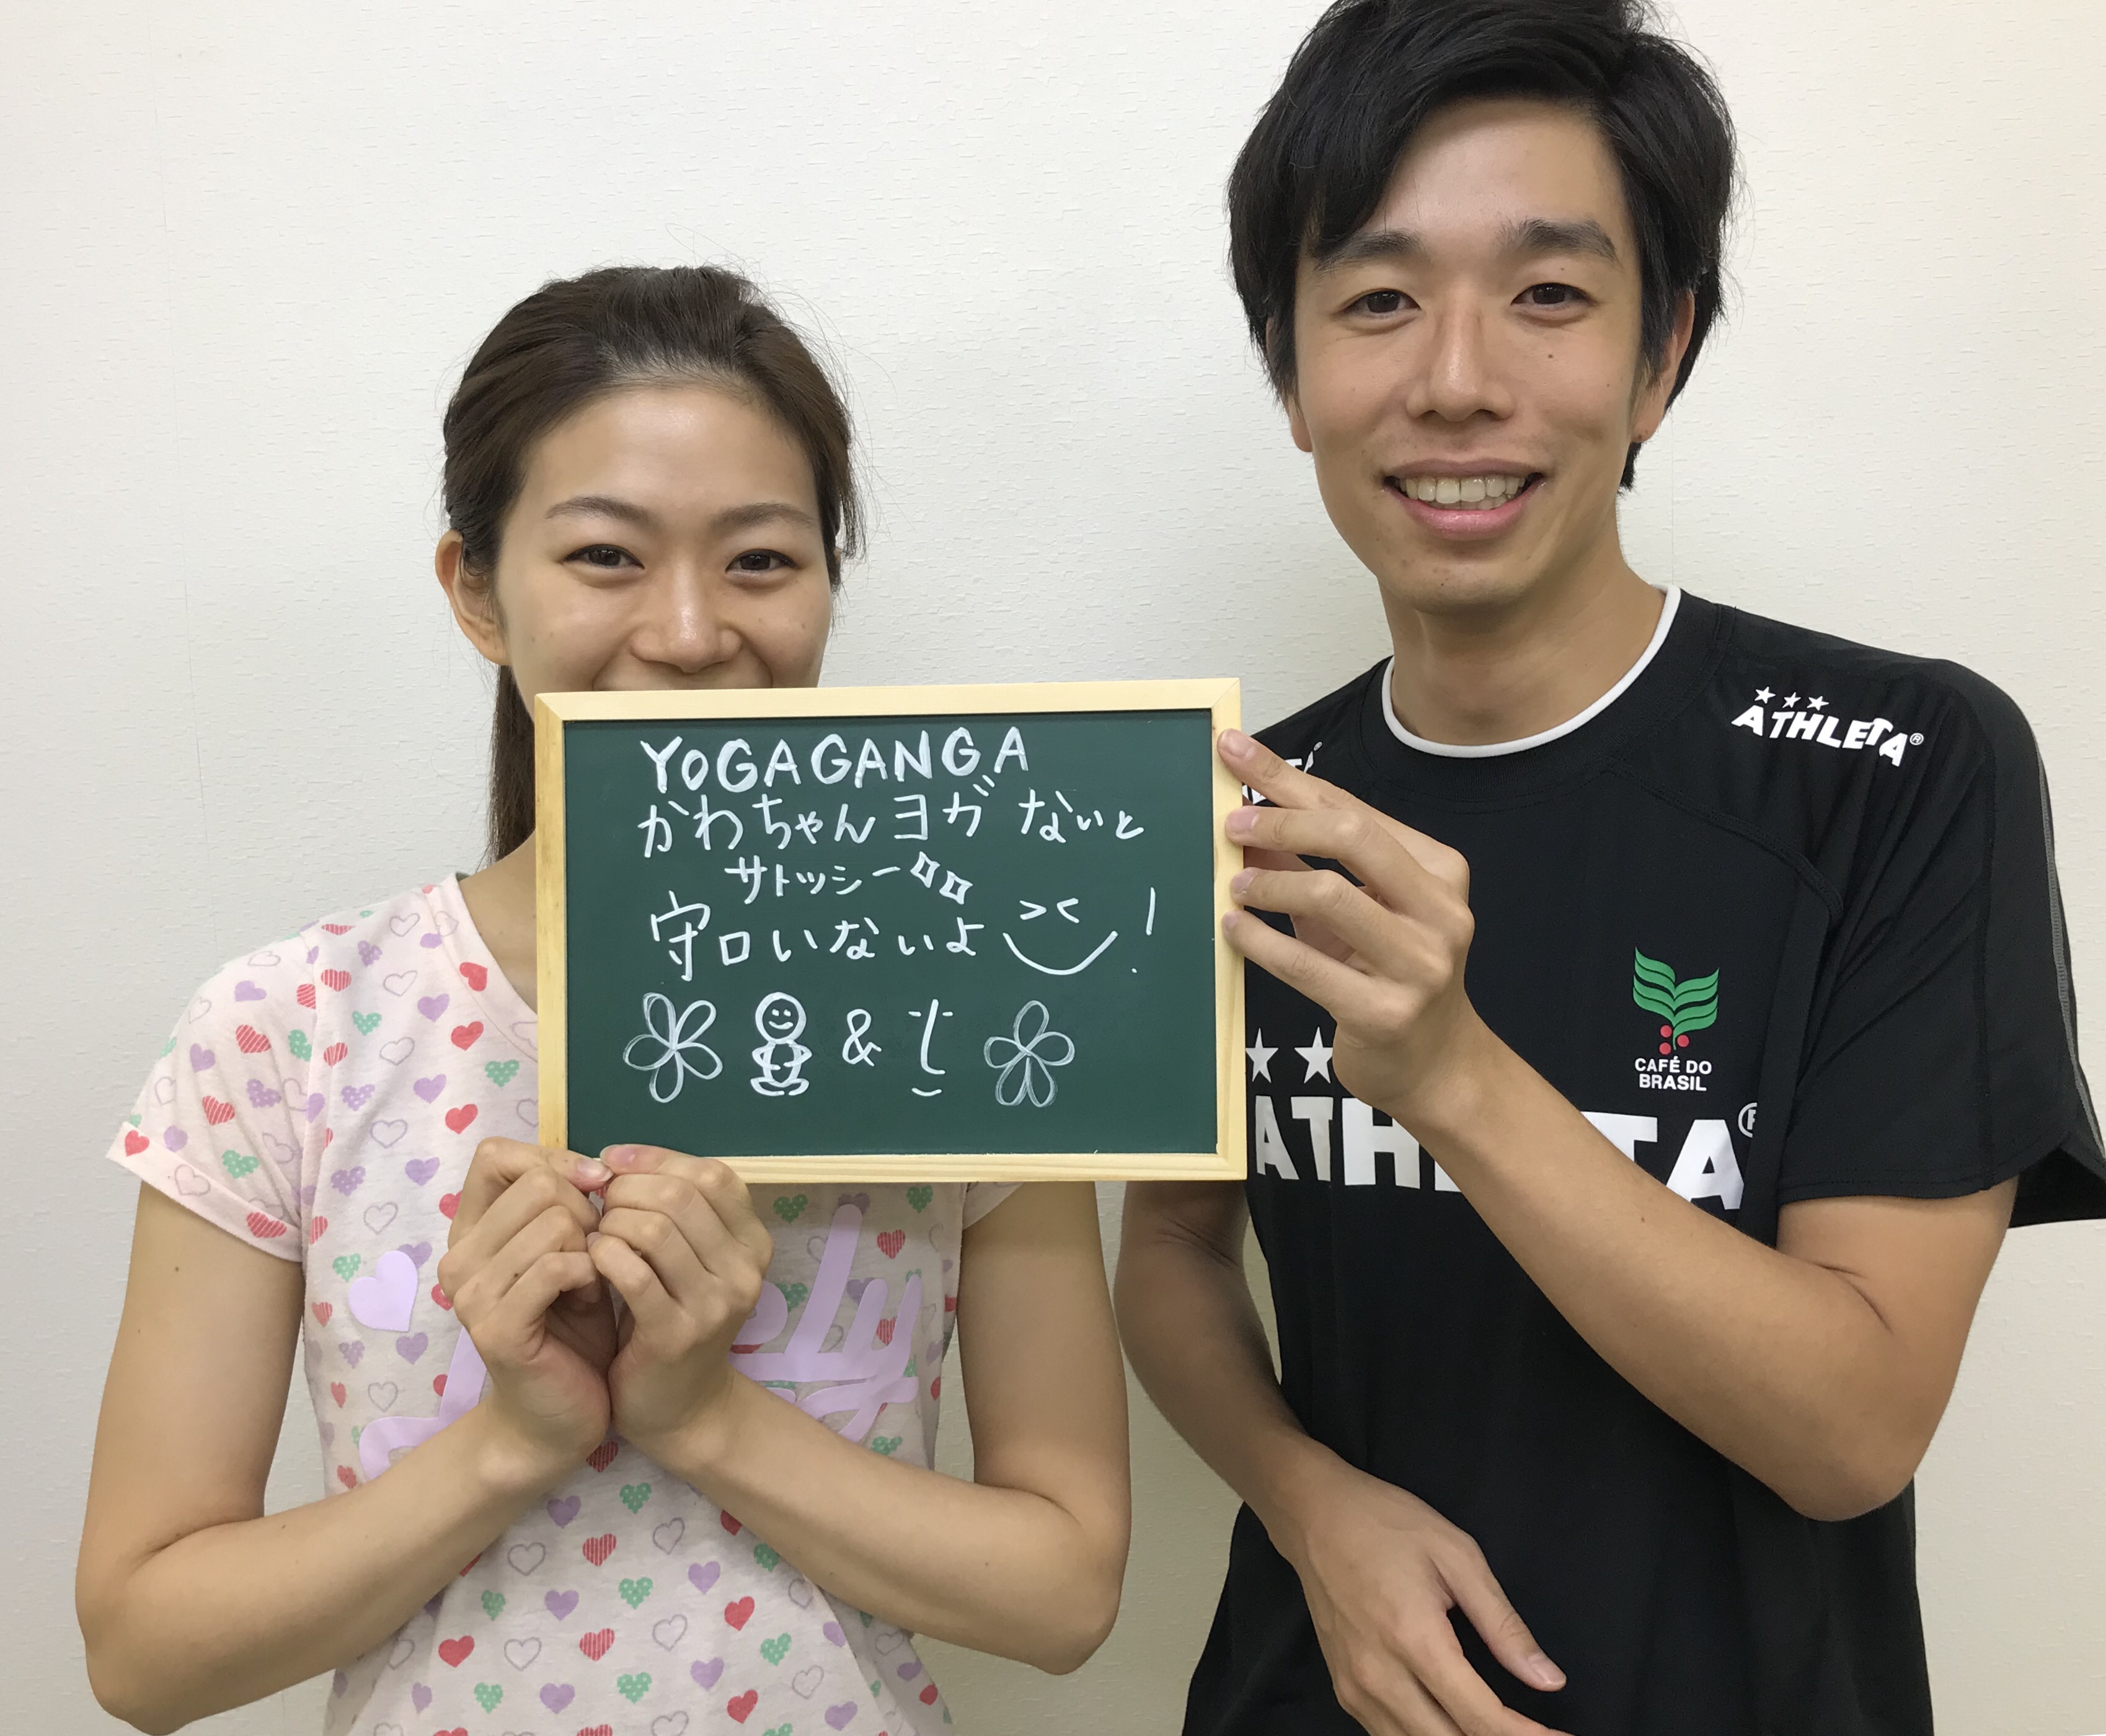 YOGAGANGA
かわちゃんヨガ ないと
サトッシー
守口いないよ !
&
★★★
ATHLETA®
CAFÉ DO
BRASIL